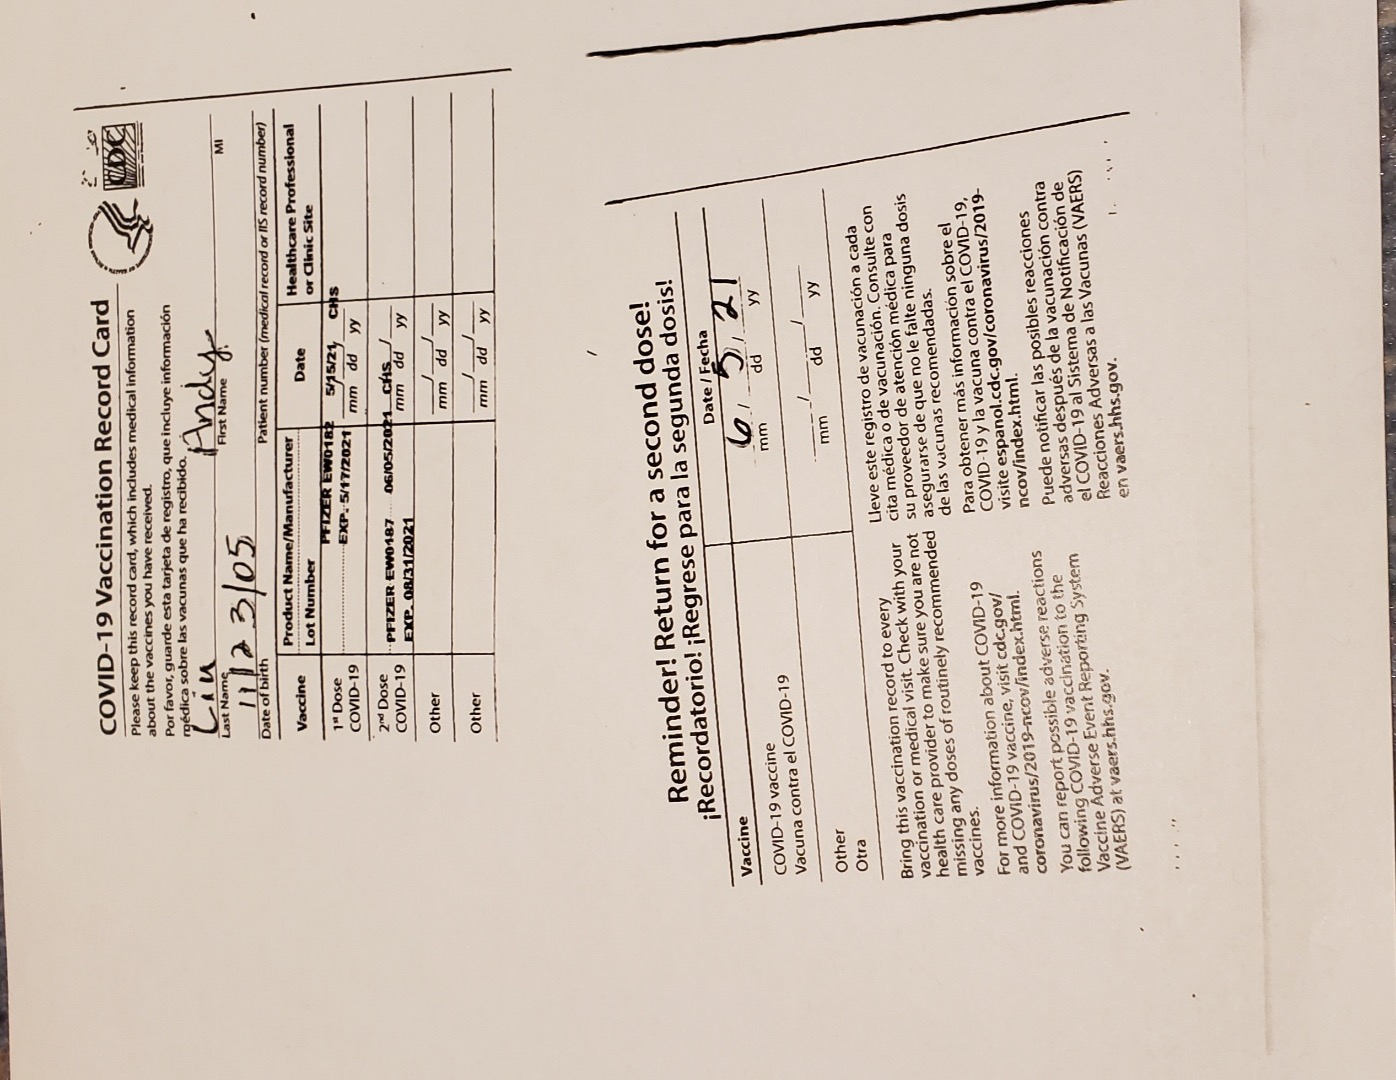 COVID-19 Vaccination Record Card
CDC
Please keep this record card, which includes medical information
about the vaccines you have received.
Por favor, guarde esta tarjeta de registro, que incluye información
médica sobre las vacunas que ha recibido.
Liu Andy
Last Name First Name MI
11/23/05
Date of birth Patient number (medical record or IIS record number)
Vaccine Product Name/Manufacturer Date Healthcare Professional
Lot Number or Clinic Site
1st Dose PFIZER EW0182 5/15/21 CHS
COVID-19 EXP. 5/17/2021 mm dd yy
2nd Dose PFIZER EW0187 06/05/2021 CHS
COVID-19 EXP. 08/31/2021 mm dd yy
Other mm dd yy
Other mm dd yy
Reminder! Return for a second dose!
¡Recordatorio! ¡Regrese para la segunda dosis!
Vaccine Date / Fecha
COVID-19 vaccine 6 / 5 / 21
Vacuna contra el COVID-19 mm dd yy
Other
Otra mm dd yy
Bring this vaccination record to every
vaccination or medical visit. Check with your
health care provider to make sure you are not
missing any doses of routinely recommended
vaccines.
For more information about COVID-19
and COVID-19 vaccine, visit cdc.gov/
coronavirus/2019-ncov/index.html.
You can report possible adverse reactions
following COVID-19 vaccination to the
Vaccine Adverse Event Reporting System
(VAERS) at vaers.hhs.gov.
Lleve este registro de vacunación a cada
cita médica o de vacunación. Consulte con
su proveedor de atención médica para
asegurarse de que no le falte ninguna dosis
de las vacunas recomendadas.
Para obtener más información sobre el
COVID-19 y la vacuna contra el COVID-19,
visite espanol.cdc.gov/coronavirus/2019-
ncov/index.html.
Puede notificar las posibles reacciones
adversas después de la vacunación contra
el COVID-19 al Sistema de Notificación de
Reacciones Adversas a las Vacunas (VAERS)
en vaers.hhs.gov.